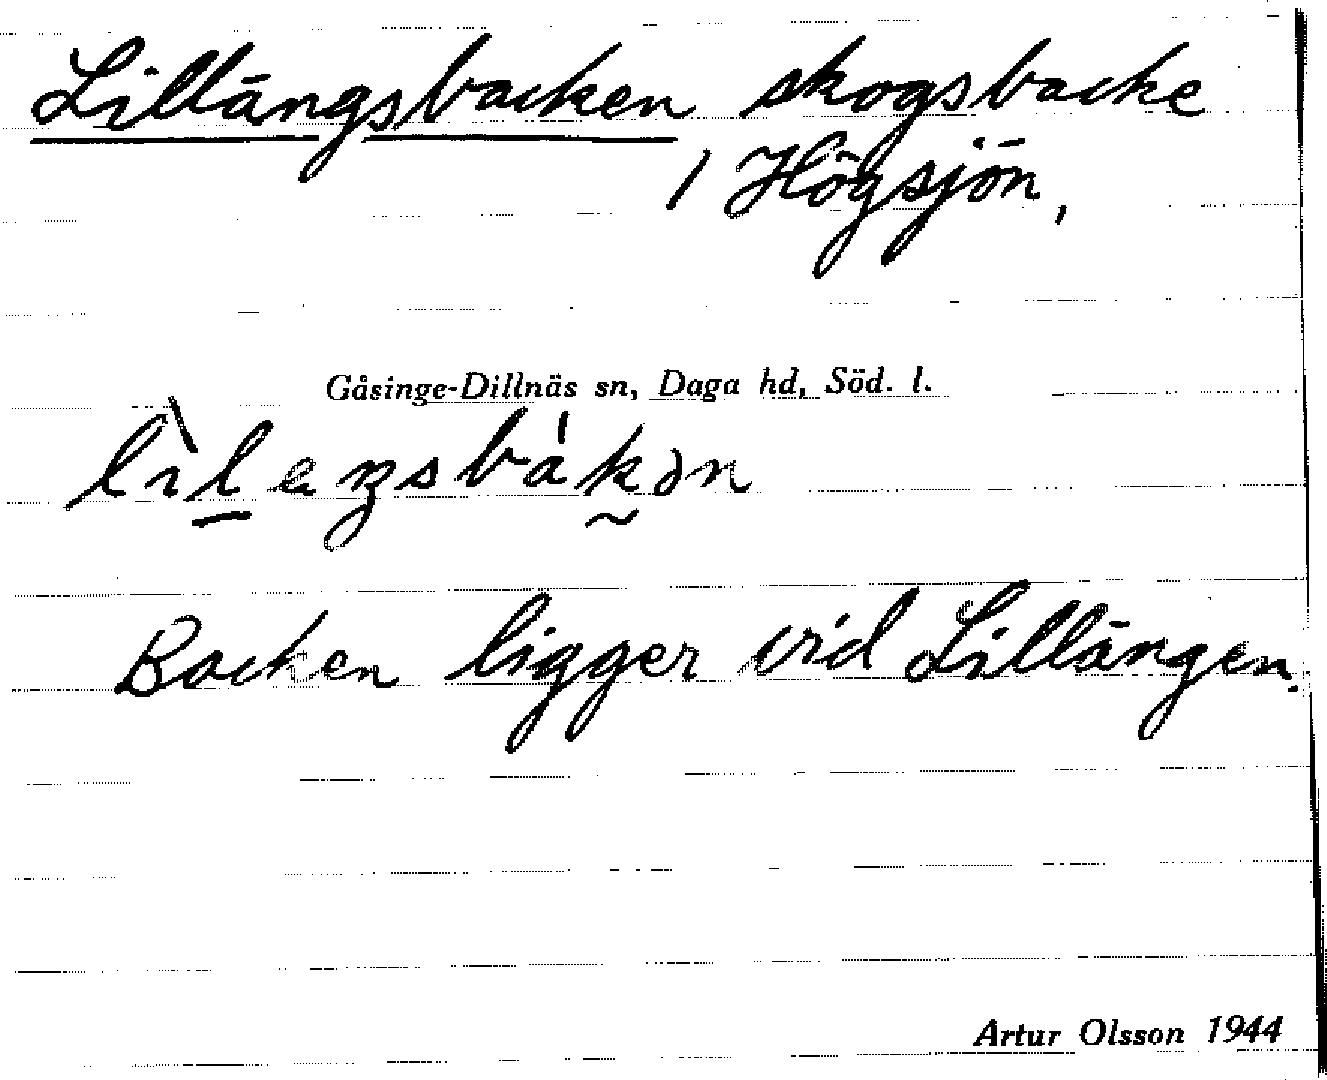 Lillängsbacken skogsbacke
/ Högsjön,
Gåsinge-Dillnäs sn, Daga hd, Söd. l.
lìlaŋsbákən
Backen ligger vid Lillängen.
Artur Olsson 1944